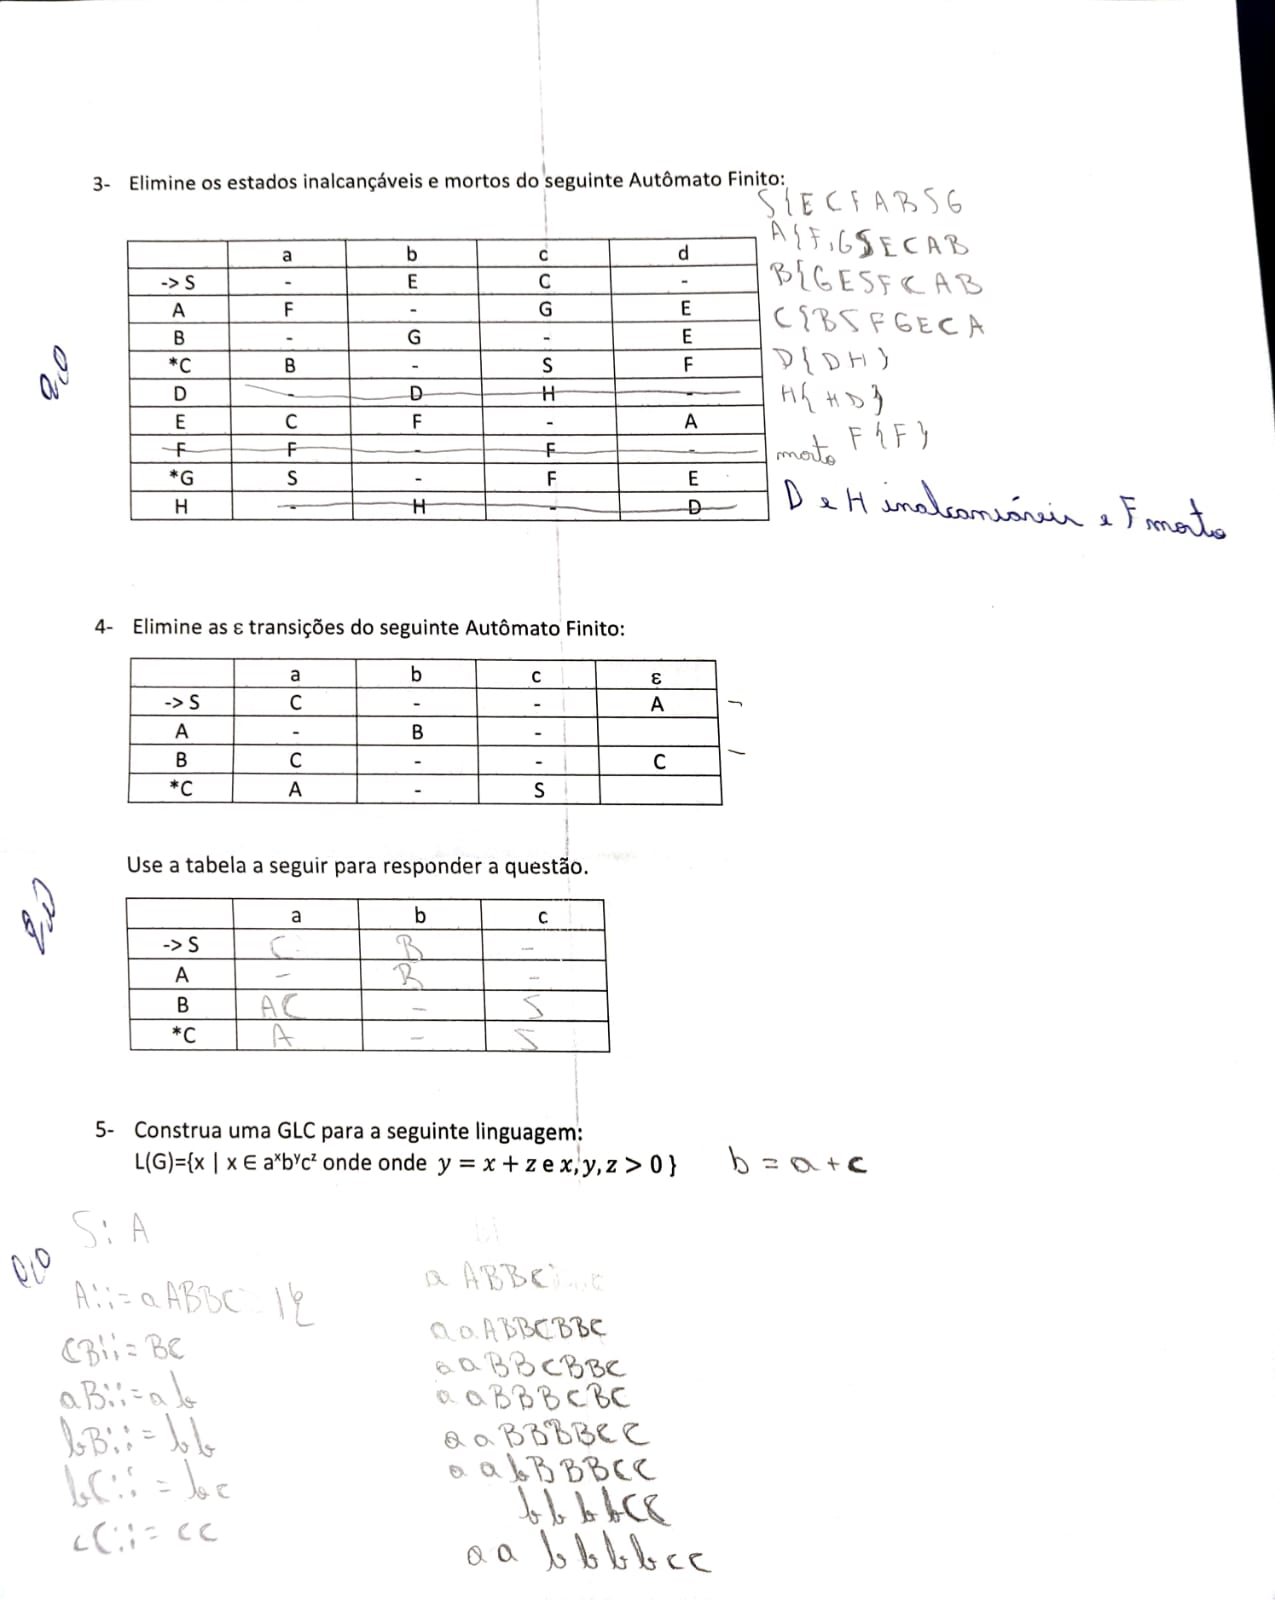 3- Elimine os estados inalcançáveis e mortos do seguinte Autômato Finito:
S{E C F A B S G
A{F,G S E C A B
B{G E S F C A B
C{B S F G E C A
D{D H}
H{H D}
F{F}
morto
D e H inalcansáveis e F morto
a b c d
-> S - E C -
A F - G E
B - G - E
*C B - S F
D - D H -
E C F - A
F F - F -
*G S - F E
H - H - D
2,0
4- Elimine as ε transições do seguinte Autômato Finito:
a b c ε
-> S C - - A
A - B -
B C - - C
*C A - S
Use a tabela a seguir para responder a questão.
2,0
a b c
-> S C B -
A - B -
B AC - S
*C A - S
5- Construa uma GLC para a seguinte linguagem:
L(G)={x | x ∈ aˣbʸcᶻ onde onde y = x + z e x, y, z > 0 }
b = a + c
0,0
S: A
A::= aABBC | ε
CB::= BC
aB::= ab
bB::= bb
bC::= bc
cC::= cc
a ABBC
aaABBCBBC
aaBBCBBC
aaBBBCBC
aaBBBBCC
aabBBBCC
bbbbCC
aabbbbcc